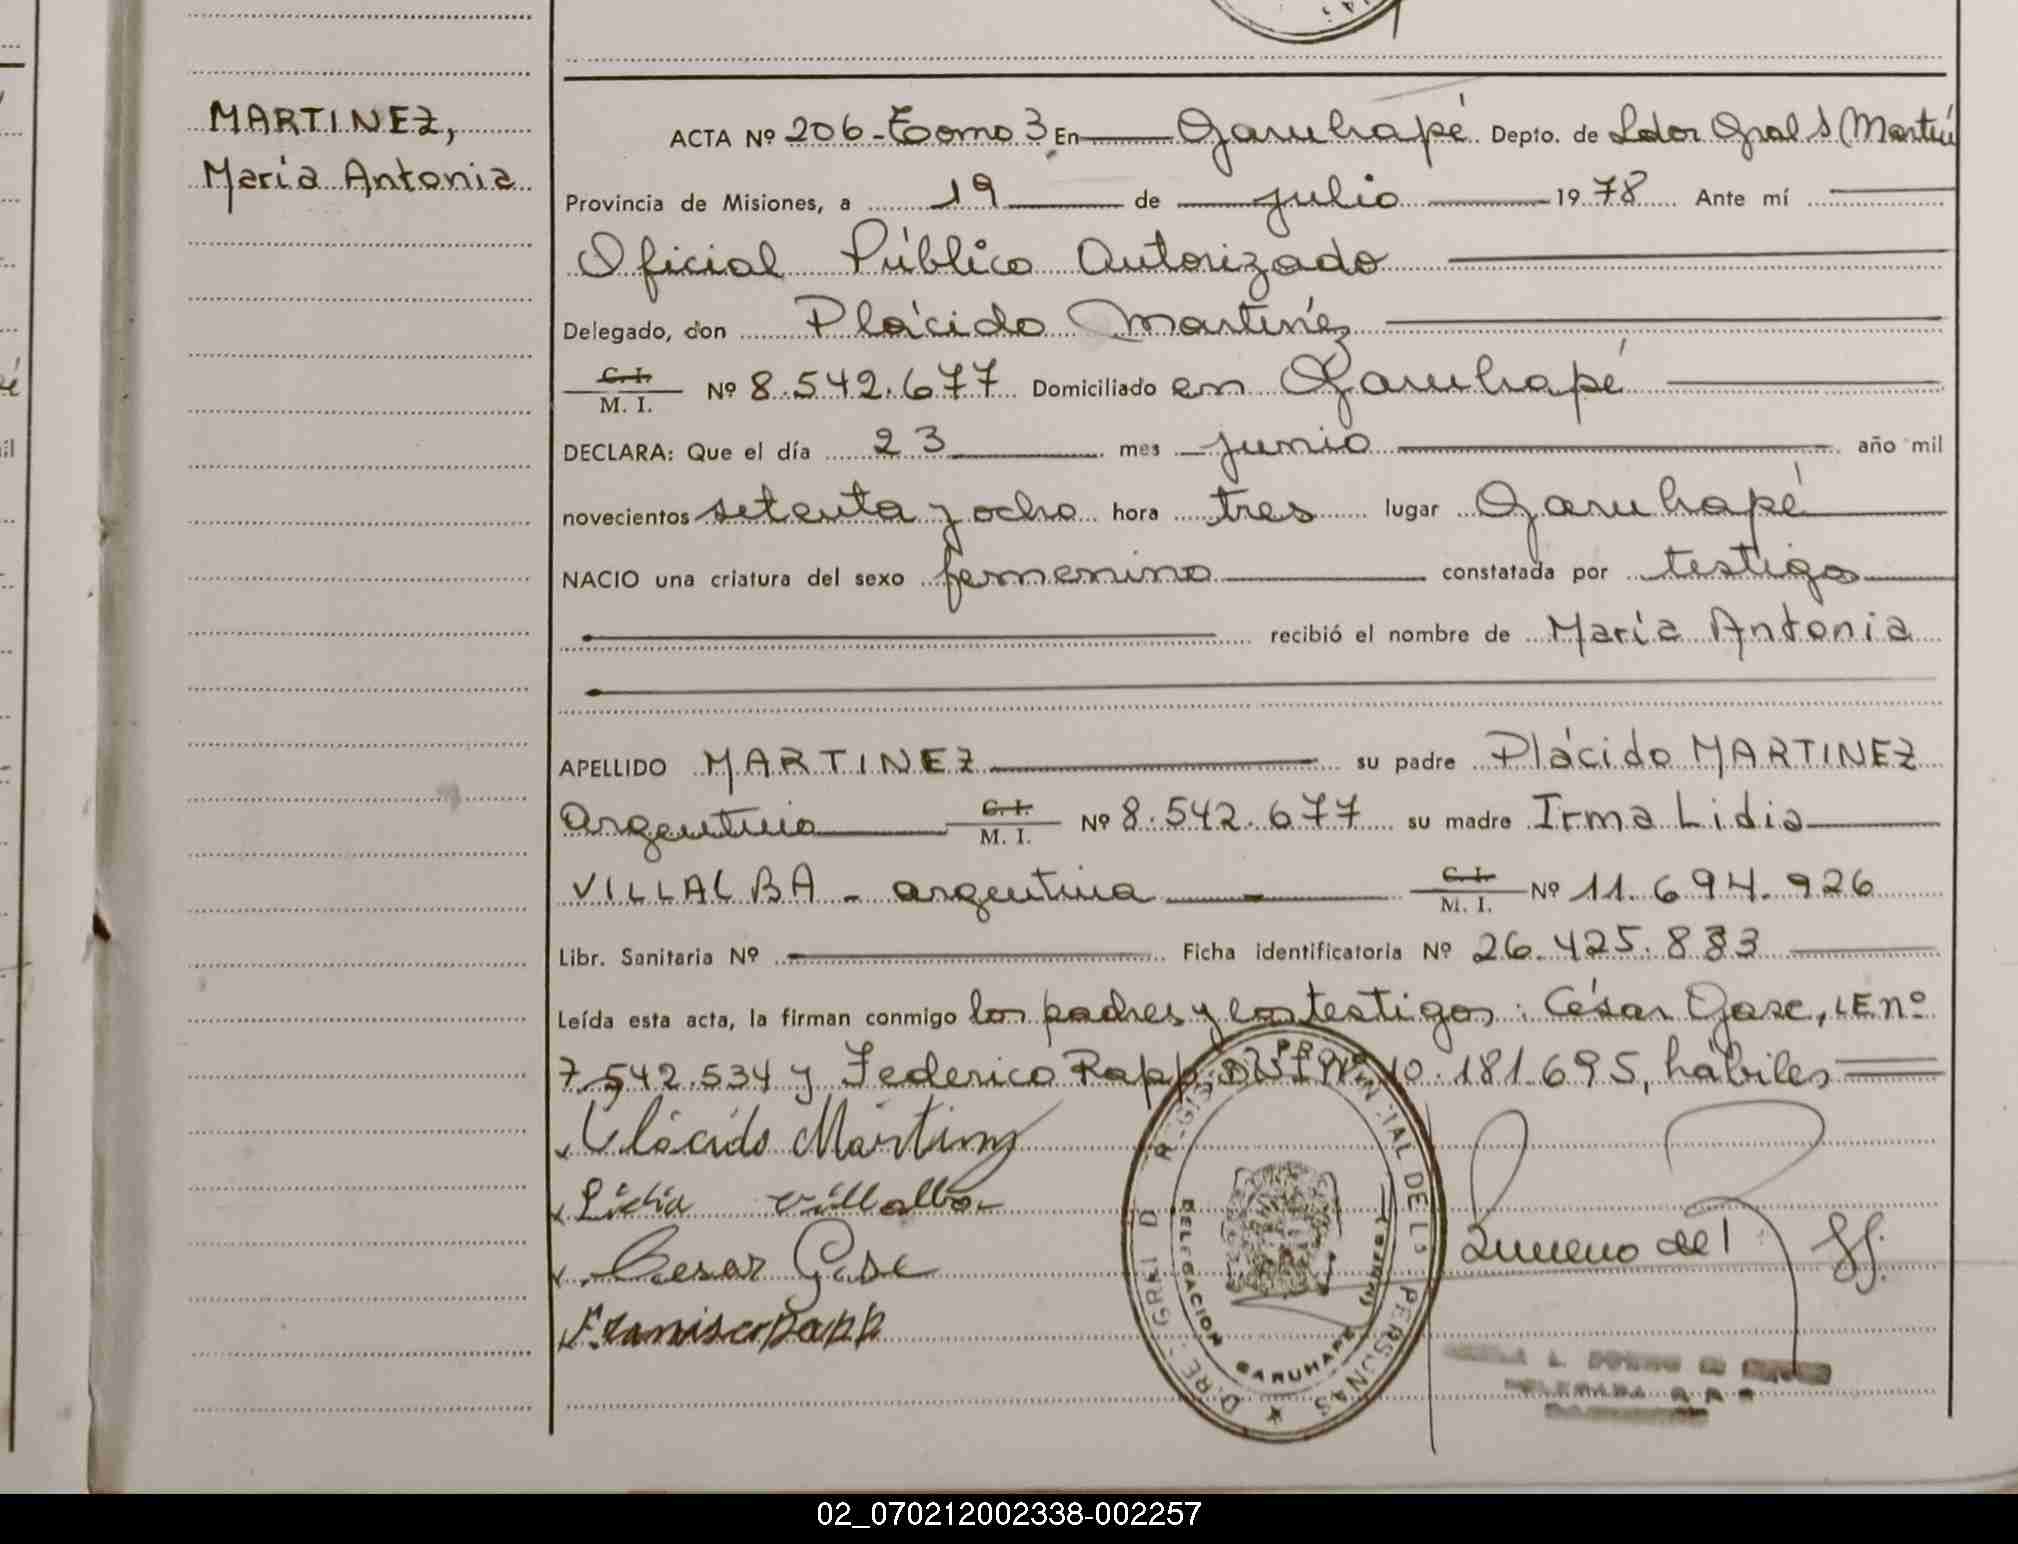 MARTINEZ,
María Antonia
ACTA Nº 206-Tomo 3 En Garuhapé Depto. de Ldor Gral S Martín
Provincia de Misiones, a 19 de julio 1978 Ante mí
Oficial Público Autorizado
Delegado, don Plácido Martínez
C. I.
M. I. Nº 8.542.677 Domiciliado en Garuhapé
DECLARA: Que el día 23 mes junio año mil
novecientos setenta y ocho hora tres lugar Garuhapé
NACIO una criatura del sexo femenino constatada por testigos
recibió el nombre de María Antonia
APELLIDO MARTINEZ su padre Plácido MARTINEZ
Argentino C. I.
M. I. Nº 8.542.677 su madre Irma Lidia
VILLALBA - argentina - C. I.
M. I. Nº 11.694.926
Libr. Sanitaria Nº Ficha identificatoria Nº 26.425.883
Leída esta acta, la firman conmigo los padres y los testigos: César Gase, LE nº
7.542.534 y Federico Rapp, DNI Nº 10.181.695, hábiles
Plácido Martinez
Lidia Villalba
Cesar Gase
Rapp
PROVINCIAL DE LAS PERSONAS
DELEGACION GARUHAPE (MNES)
02_070212002338-002257